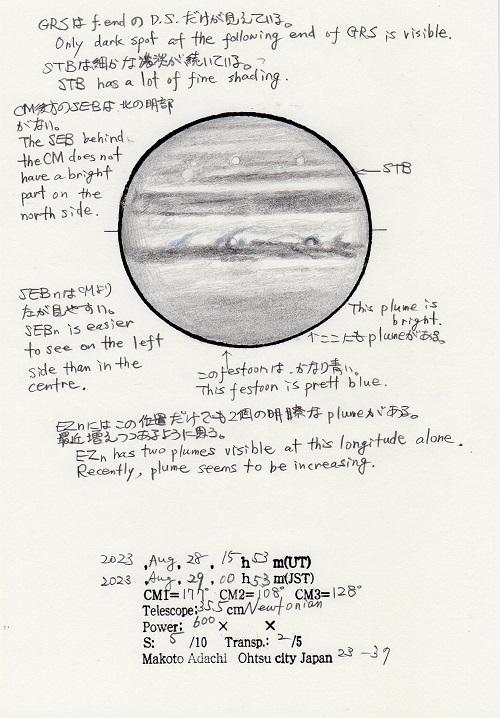 GRSは f.endの D.S.だけが見えている。
Only dark spot at the following end of GRS is visible.
STBは細かな濃淡が続いている。
STB has a lot of fine shading.
CM後方のSEBは、北の明部
がない。
The SEB behind
the CM does not
have a bright
part on the
north side.
STB
SEBnはCMより
左が見やすい。
SEBn is easier
to see on the left
side than in the
centre.
This plume is
bright.
ここにもplumeがある。
このfestoonは、かなり青い。
This festoon is prett blue.
EZnにはこの位置だけでも2個の明瞭なplumeがある。
最近増えつつあるように思う。
EZn has two plumes visible at this longitude alone.
Recently, plume seems to be increasing.
2023 .Aug. 28 . 15 h 53 m(UT)
2023 .Aug. 29 . 00 h 53 m(JST)
CM1= 177° CM2= 108° CM3= 128°
Telescope; 35.5 cm Newtonian
Power; 600 × ×
S: 5 /10 Transp.: 2 /5
Makoto Adachi Ohtsu city Japan 23-37